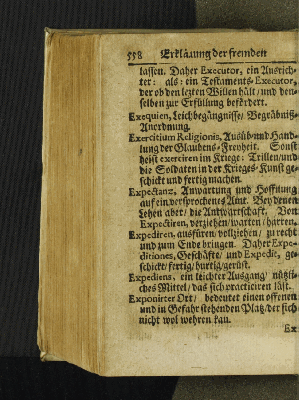 558 Erklärung der fremden
lassen. Daher Executor, ein Ausrich-
ter: als: ein Testaments-Executor,
der ob den lezten Willen hält/ und den-
selben zur Erfüllung befördert.
Exequien, Leichbegängnisse/ Begräbniß-
Anordnung.
Exercitium Religionis, Ausübund Hand-
lung der Glaubens-Freyheit. Sonst
heist exerciren im Kriege: Trillen/und
die Soldaten in der Krieges-Kunst ge-
schickt und fertig machen.
Expectanz, Anwartung und Hoffnung
auf ein versprochenes Amt. Bey denen
Lehen aber/ die Antwartschaft. Von
Expectiren, verziehen/ warten/ harren.
Expediren, ausfüren/ vollziehen/ zu recht
und zum Ende bringen. Daher Expe-
ditiones, Geschäfte/ und Expedit, ge-
schickt/ fertig/ hurtig/ gerüst.
Expediens, ein leichter Ausgang/ nüzli-
ches Mittel/ das sich practiciren läst.
Exponirter Ort/ bedeutet einen offenen
und in Gefahr stehenden Platz/ der sich
nicht wol wehren kan.
Ex